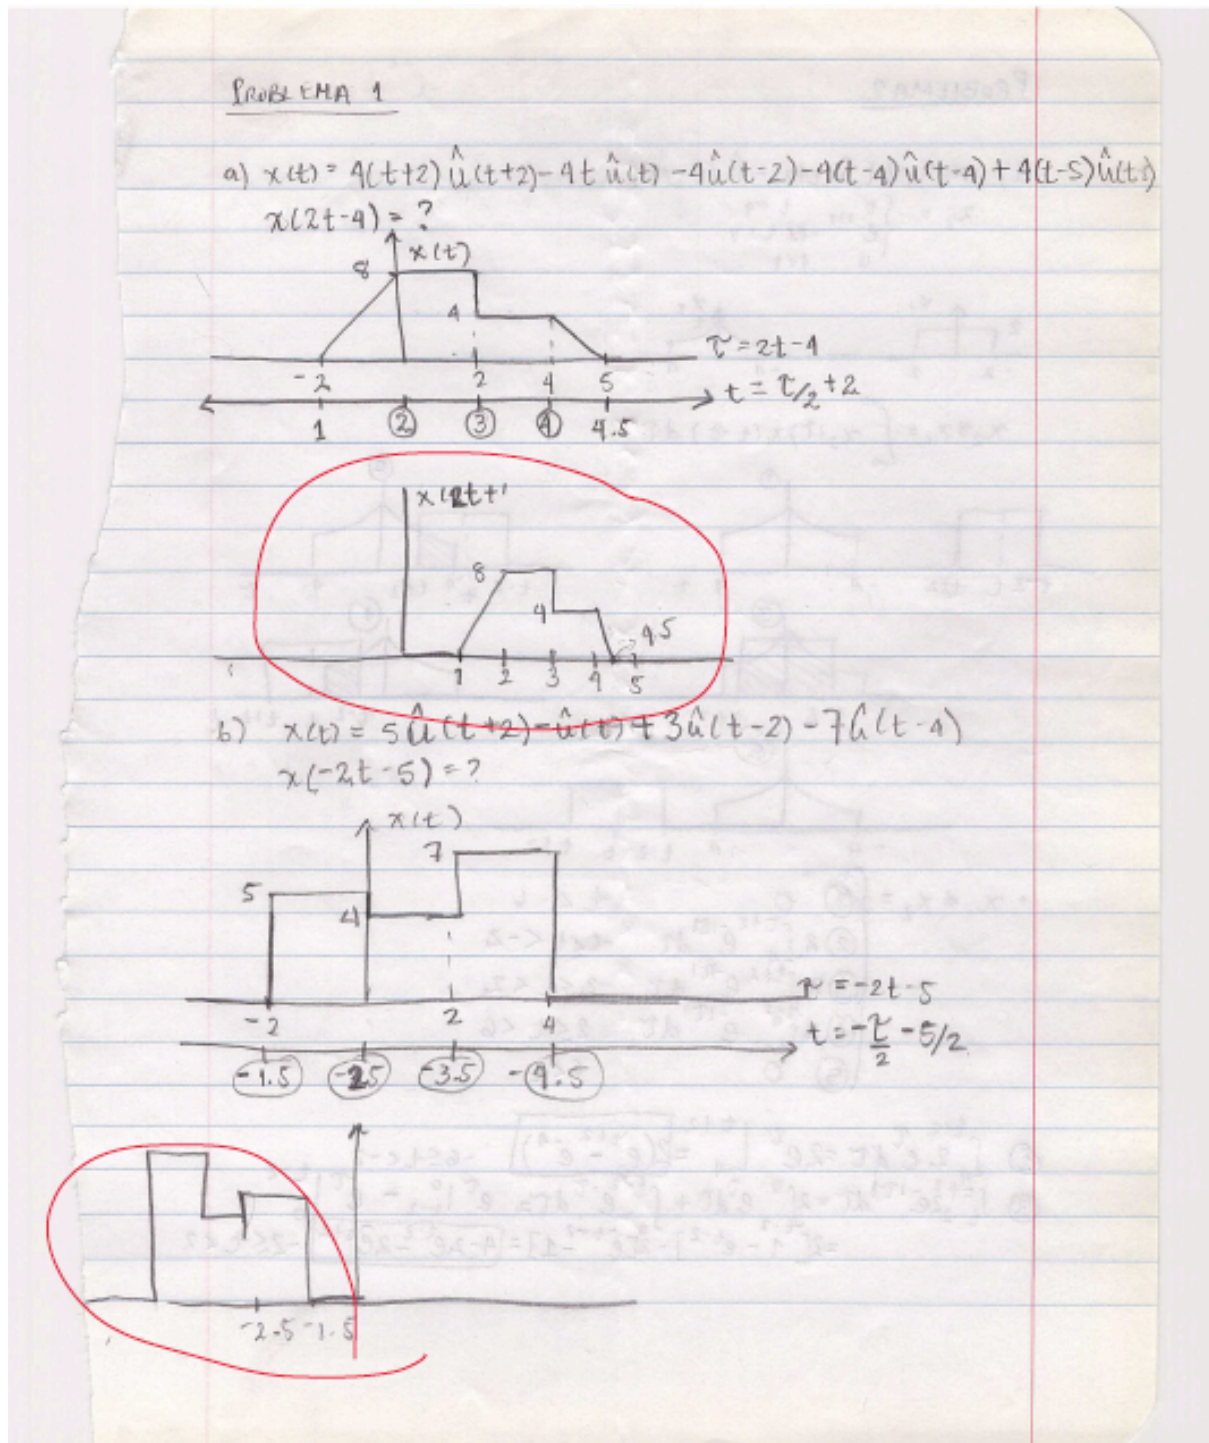 PROBLEMA 1
a) x(t) = 4(t+2) û(t+2) - 4t û(t) - 4û(t-2) - 4(t-4) û(t-4) + 4(t-5) û(t-5)
x(2t-4) = ?
x(t)
8
4
τ = 2t-4
-2 2 4 5
t = τ/2 + 2
1 2 3 4 4.5
x(2t+
8
4
4.5
1 2 3 4 5
b) x(t) = 5û(t+2) - û(t) + 3û(t-2) - 7û(t-4)
x(-2t-5) = ?
x(t)
7
5
4
τ = -2t-5
-2 2 4
t = -τ/2 - 5/2
-1.5 -2.5 -3.5 -4.5
-2.5 -1.5